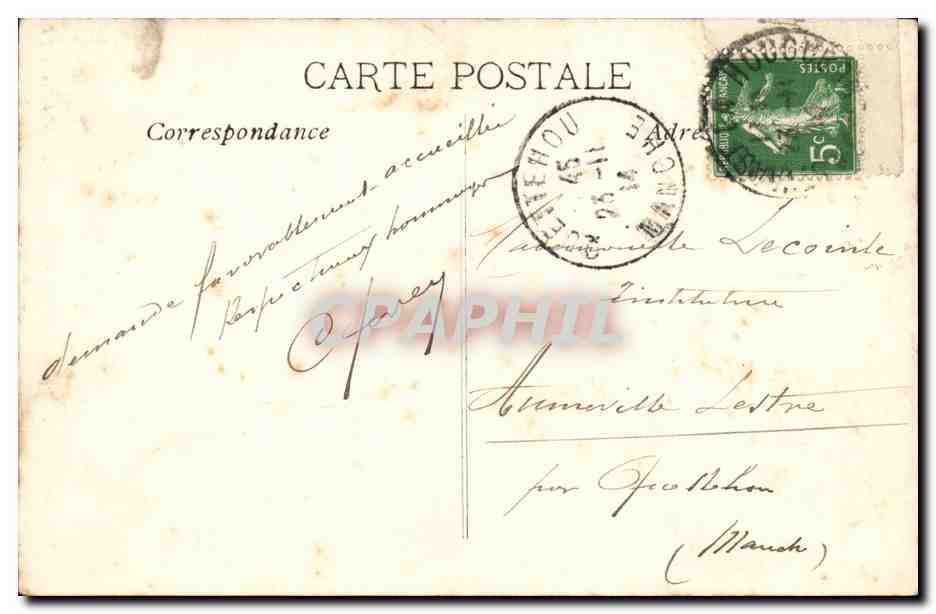 CARTE POSTALE
Correspondance
Adres
demande favorablement accueillie
Respectueux hommages
QUETTEHOU
MANCHE
45
23-11
14
POSTES
5c
Mademoiselle Lecointe
Institutrice
Aumeville Lestre
par Quettehou
(Manche)
CPAPHIL